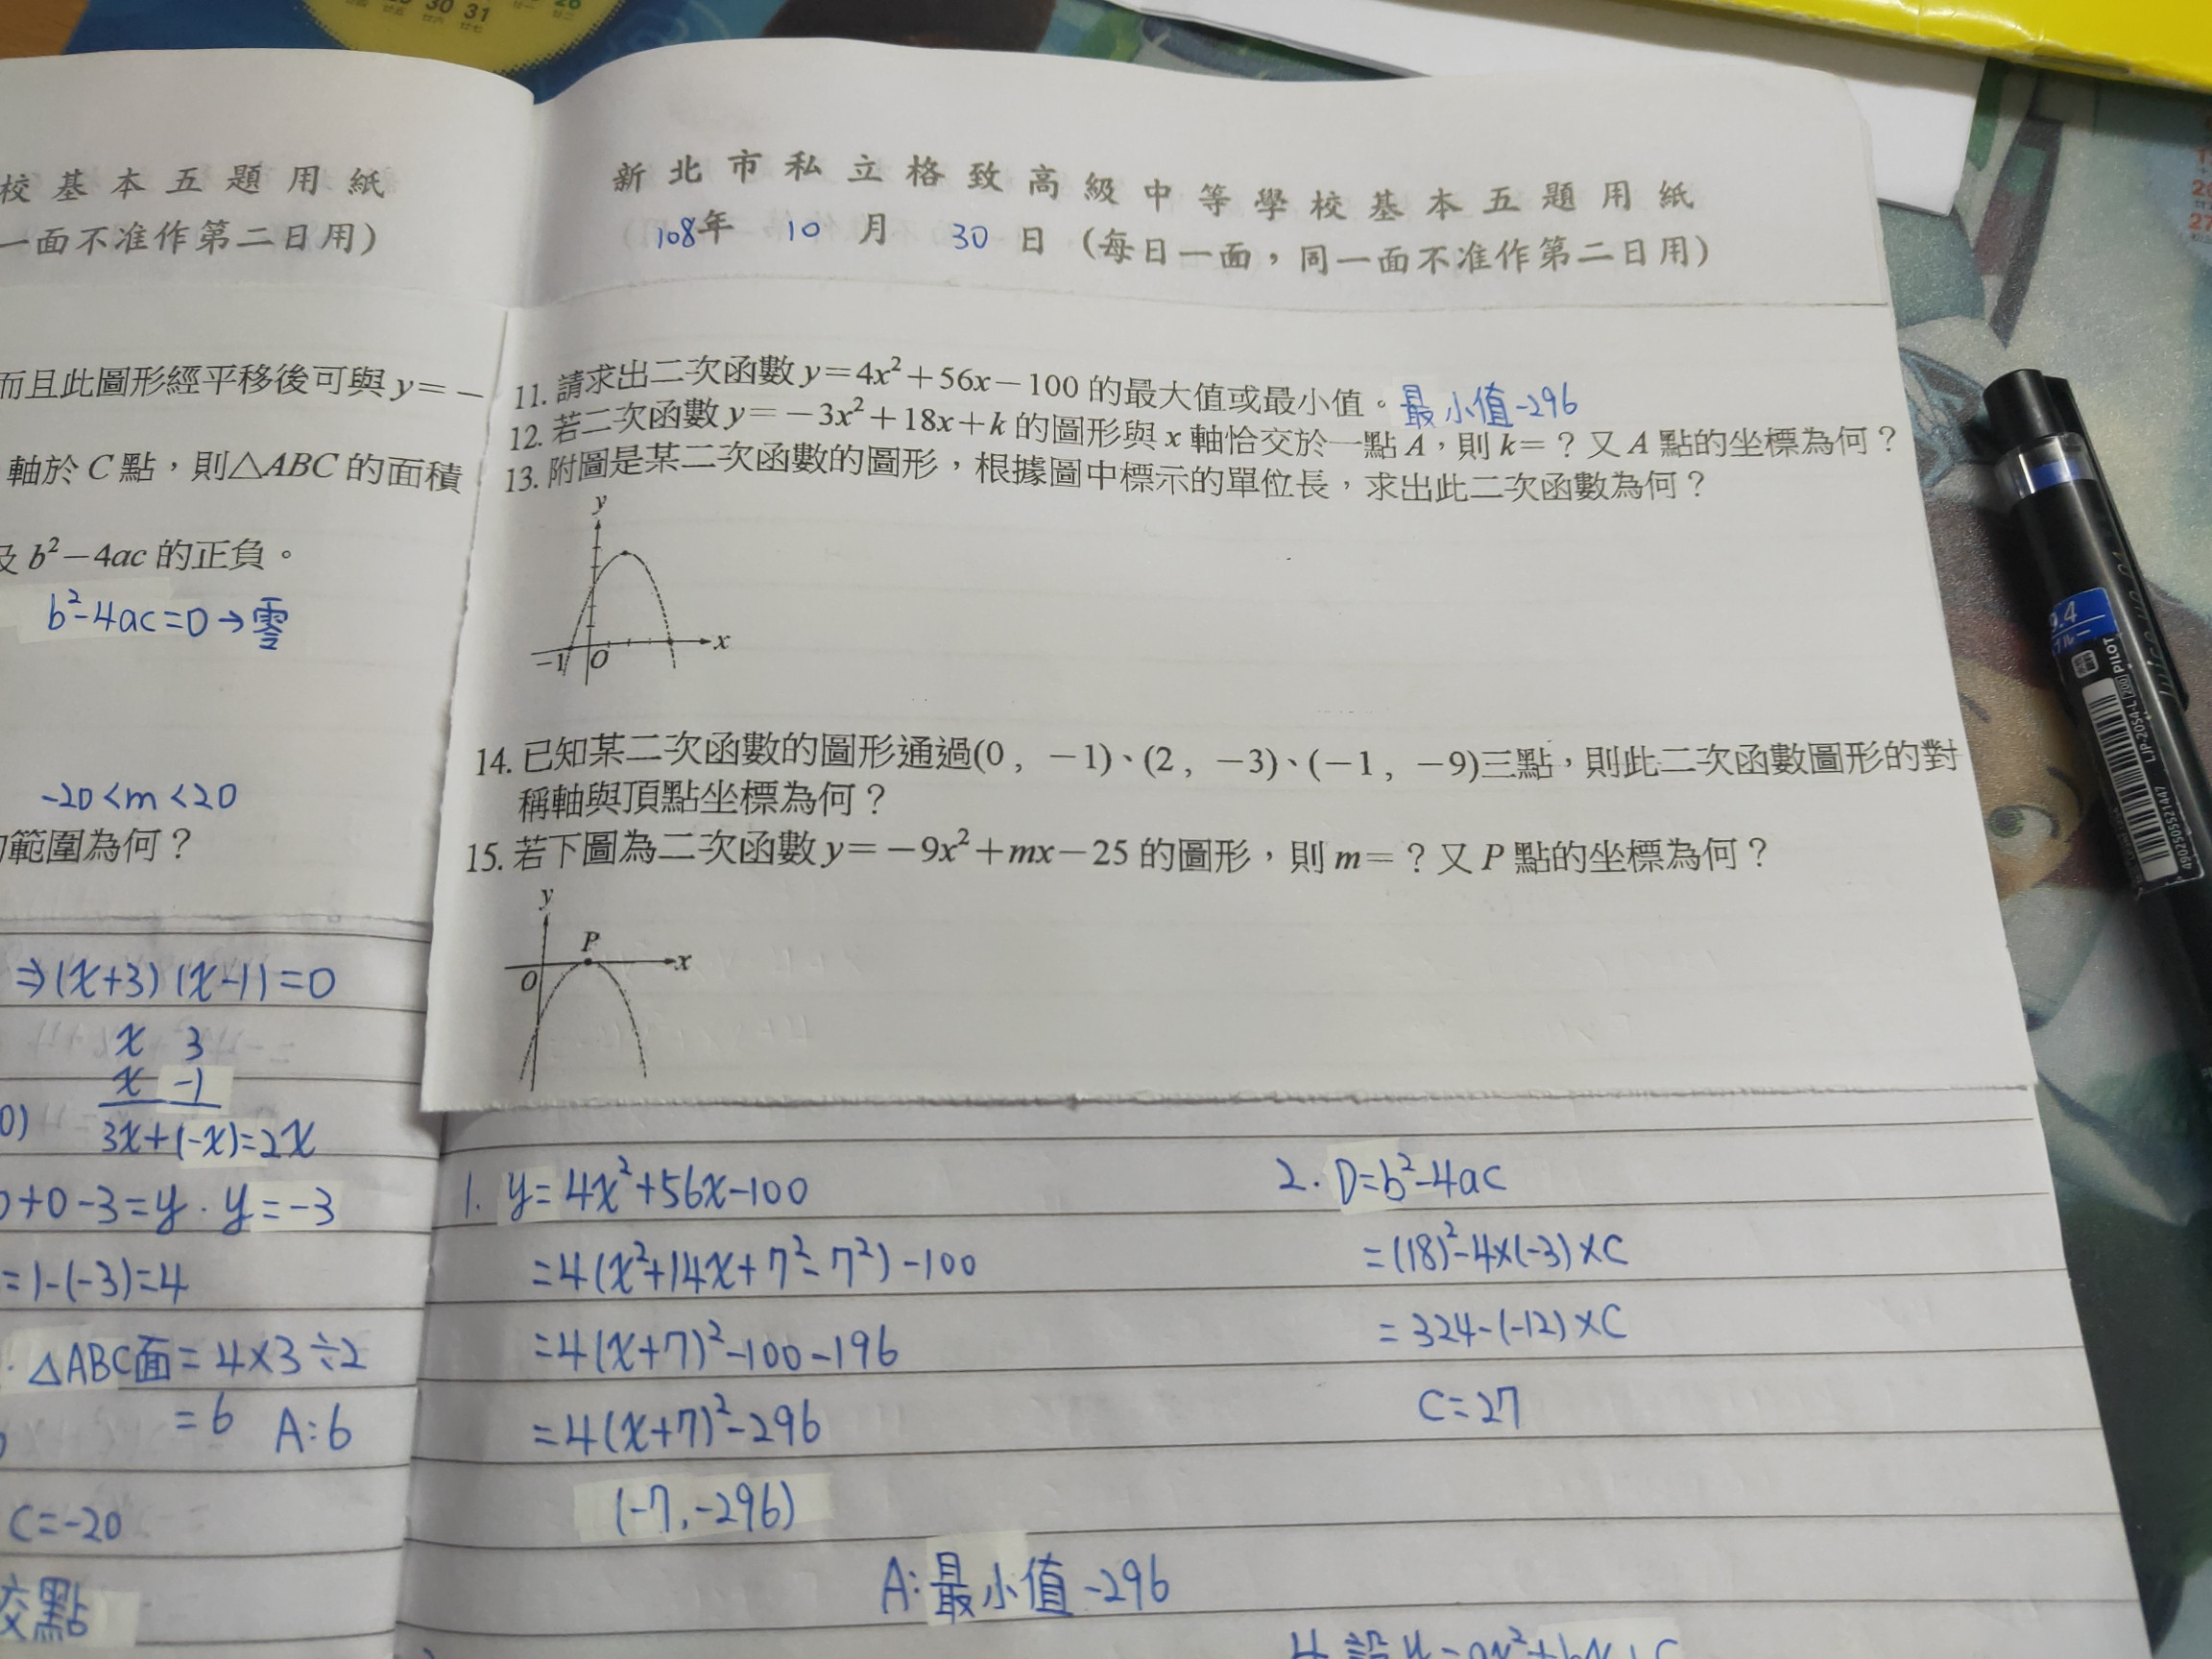 30 31
校基本五題用紙
一面不准作第二日用)
而且此圖形經平移後可與 y=-
軸於 C 點，則△ABC 的面積
及 b²-4ac 的正負。
b²-4ac=0→零
-20<m<20
範圍為何？
⇒(x+3)(x-1)=0
x 3
x -1
3x+(-x)=2x
+0-3=y. y=-3
=1-(-3)=4
△ABC面=4×3÷2
=6 A:6
C=-20
交點
新北市私立格致高級中等學校基本五題用紙
108年 10月 30日 (每日一面，同一面不准作第二日用)
11. 請求出二次函數 y=4x²+56x-100 的最大值或最小值。最小值-296
12. 若二次函數 y=-3x²+18x+k 的圖形與 x 軸恰交於一點 A，則 k=？又 A 點的坐標為何？
13. 附圖是某二次函數的圖形，根據圖中標示的單位長，求出此二次函數為何？
y
x
-1 O
14. 已知某二次函數的圖形通過(0, -1)、(2, -3)、(-1, -9)三點，則此二次函數圖形的對
稱軸與頂點坐標為何？
15. 若下圖為二次函數 y=-9x²+mx-25 的圖形，則 m=？又 P 點的坐標為何？
y
P
x
O
1. y=4x²+56x-100
=4(x²+14x+7²-7²)-100
=4(x+7)²-100-196
=4(x+7)²-296
(-7,-296)
A:最小值-296
2. D=b²-4ac
=(18)²-4×(-3)×C
=324-(-12)×C
C=27
PILOT
LJP-20S4-L
4902505521447